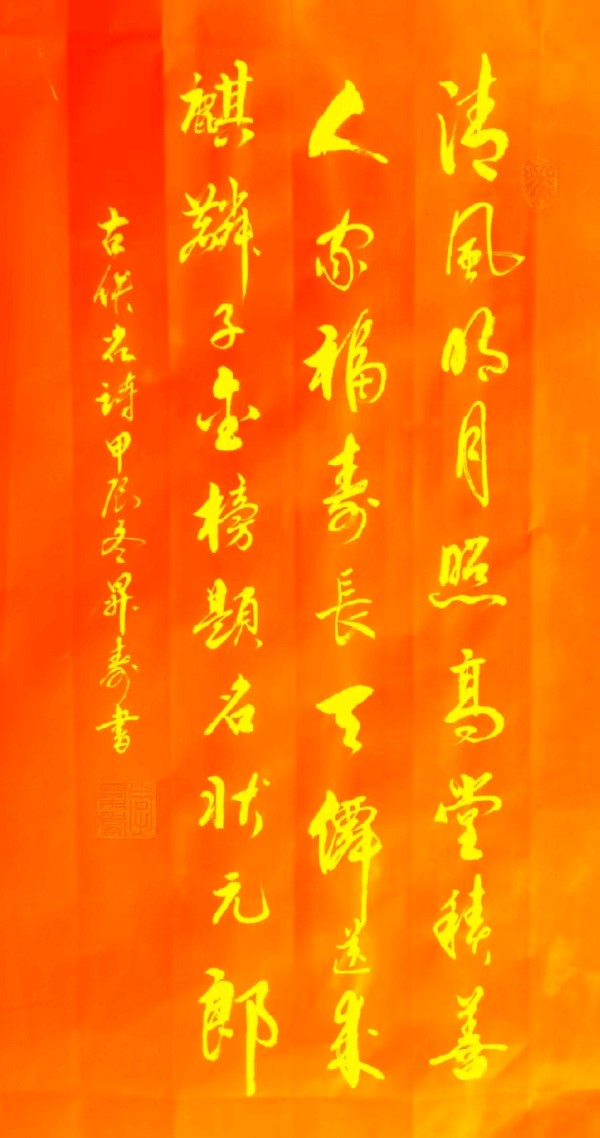 清風明月照高堂積善
人家福壽長天僊送來
麒麟子金榜題名狀元郎
古代名詩甲辰冬昇壽書